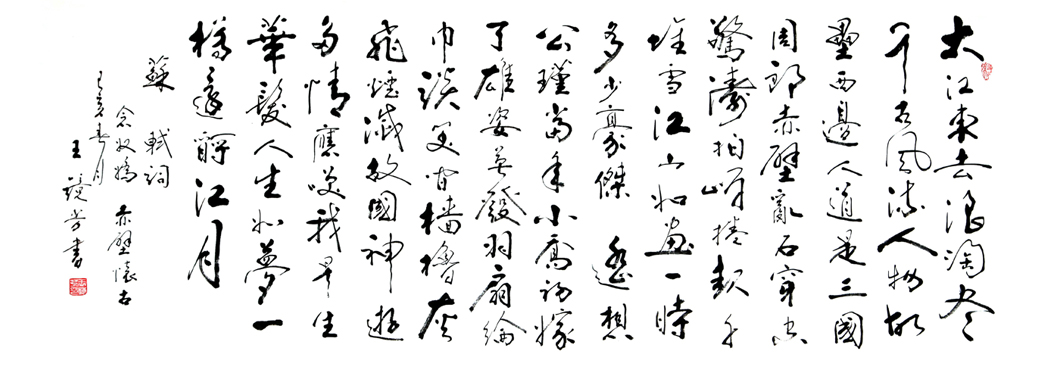 大江東去浪淘盡
千古風流人物故
壘西邊人道是三國
周郎赤壁亂石穿空
驚濤拍岸捲起千
堆雪江山如畫一時
多少豪傑 遙想
公瑾當年小喬初嫁
了雄姿英發羽扇綸
巾談笑間檣櫓灰
飛煙滅故國神遊
多情應笑我早生
華髮人生如夢一
樽還酹江月
蘇軾詞
念奴嬌 赤壁懷古
春月
王芳書